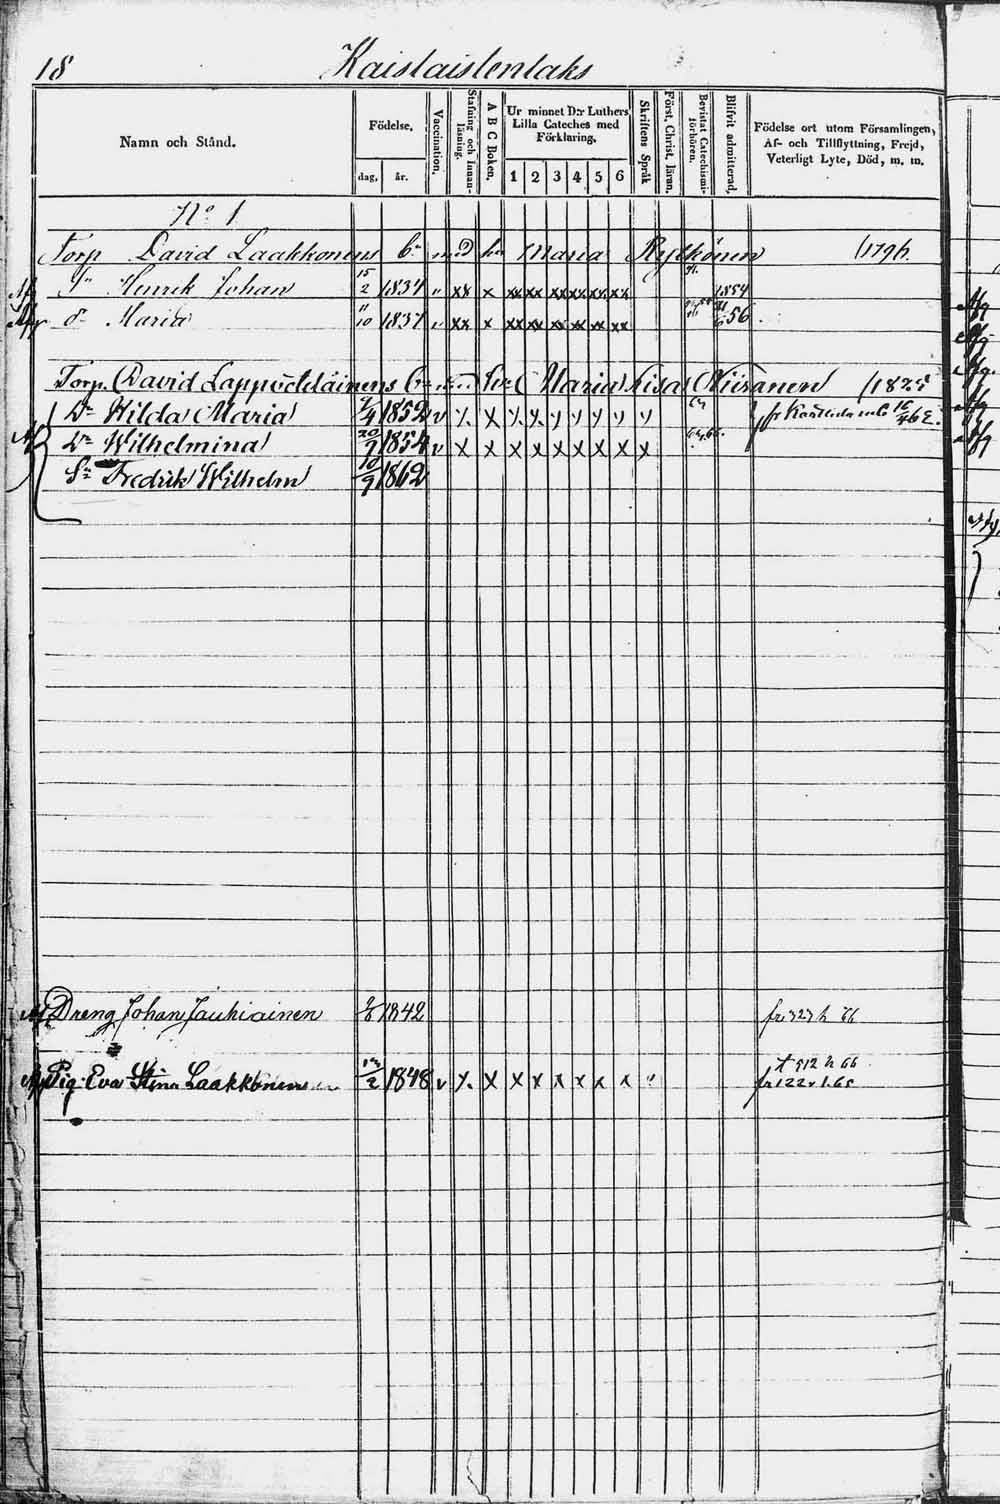 18 Kaislaistenlaks
Namn och Stånd. Födelse, dag, år. Vaccination. Stafning och Innanläsning. A B C Boken. Ur minnet D:r Luthers Lilla Cateches med Förklaring. 1 2 3 4 5 6 Skriftens Språk Först. Christ. läran. Bevistat Catechismiförhören. Blifvit admitterad. Födelse ort utom Församlingen, Af- och Tillflyttning, Frejd, Veterligt Lyte, Död, m. m.
No 1
Torp David Laakkonens med Maria Rytkönen 1796
Sn Henrik Johan 15/2 1834 v xx x xx xx xx xx xx xx 1854
Dr Maria 11/10 1837 v xx x xx xx xx xx xx xx 56
Torp. David Lappveteläinens med Maria Lisa Niiranen 1825
Dr Hilda Maria 1852 v x x x x y y y y y fr
Dr Wilhelmina 20/9 1854 v x x x x x x x x x
Sn Fredrik Wilhelm 10/9 1862
Dreng Johan Jauhiainen 1842 fr 323 h 66
Pig. Eva Stina Laakkonen 1848 v x x x x x x x x t 512 h 66
fr 122 v 1.65